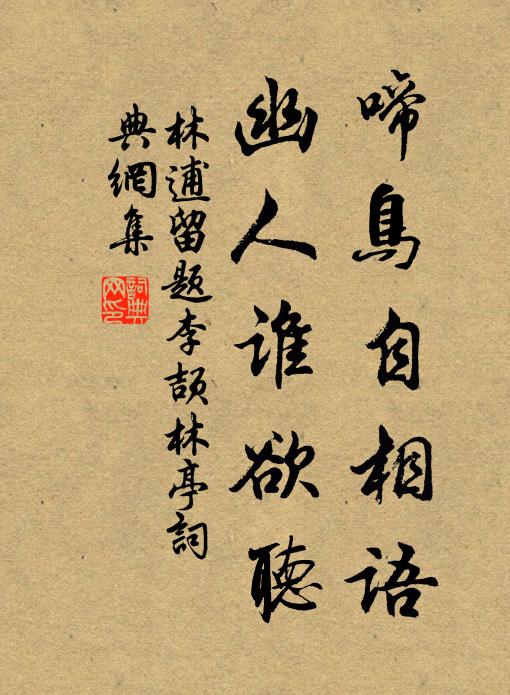 啼鳥自相語
幽人誰欲聽
林逋留題李頡林亭詞
典網集
詞典網印